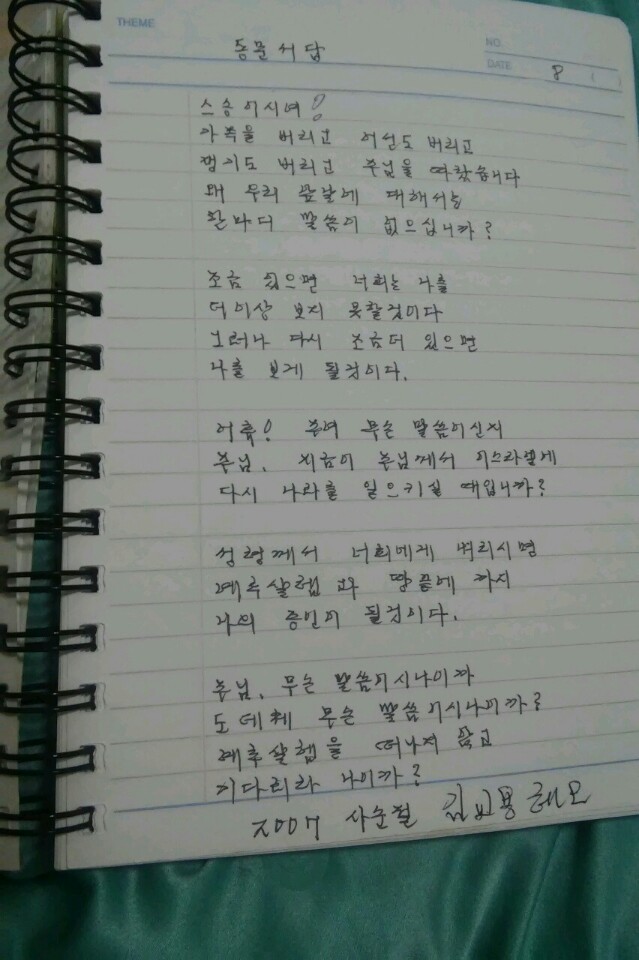 THEME
동문서답
NO.
DATE 8 ( (
스승이시여!
가족을 버리고 어선도 버리고
쟁기도 버리고 주님을 따랐습니다
왜 우리 앞날에 대해서는
한마디 말씀이 없으십니까?
조금 있으면 너희는 나를
더이상 보지 못할것이다
그러나 다시 조금더 있으면
나를 보게 될것이다.
어휴! 주여 무슨 말씀이신지
주님, 지금이 주님께서 이스라엘에
다시 나라를 일으키실 때입니까?
성령께서 너희에게 내리시면
예루살렘과 땅끝에 까지
나의 증인이 될것이다.
주님, 무슨 말씀이시나이까
도데체 무슨 말씀이시나이까?
예루살렘을 떠나지 않고
기다리라 나이까?
2007 사순절 김 용